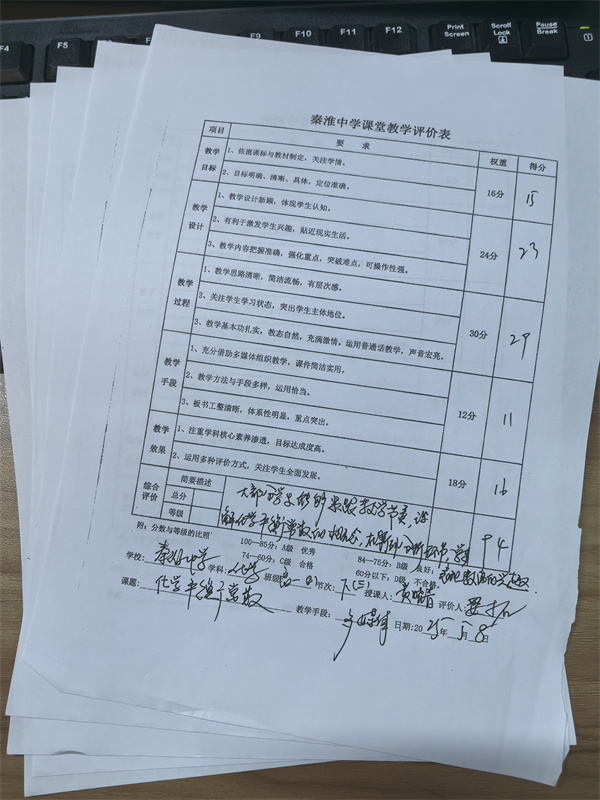 F4
F5
F9
F10
F11
F12
Print
Screen
Scroll
Lock
Pause
Break
秦淮中学课堂教学评价表
项目 要 求 权重 得分
教学目标 1、依据课标与教材制定，关注学情。 16分 15
2、目标明确、清晰、具体，定位准确。
教学设计 1、教学设计新颖，体现学生认知。 24分 23
2、有利于激发学生兴趣，贴近现实生活。
3、教学内容把握准确，强化重点，突破难点，可操作性强。
教学过程 1、教学思路清晰，简洁流畅，有层次感。 30分 29
2、关注学生学习状态，突出学生主体地位。
3、教学基本功扎实，教态自然，充满激情。运用普通话教学，声音宏亮。
教学手段 1、充分借助多媒体组织教学，课件简洁实用。 12分 11
2、教学方法与手段多样，运用恰当。
3、板书工整清晰，体系性明显，重点突出。
教学效果 1、注重学科核心素养渗透，目标达成度高。 18分 16
2、运用多种评价方式，关注学生全面发展。
综合评价 简要描述 大部分学生能
总分 解化学平衡常数的概念， 94
等级
附：分数与等级的比照 100—85分：A级 优秀 84—75分：B级 良好；
74—60分：C级 合格 60分以下：D级 不合格。
学校：秦淮中学 学科：化学 班级 高一 节次：下(三) 授课人： 评价人：
课题：化学平衡常数 教学手段：多媒体 日期：2025年 月8日